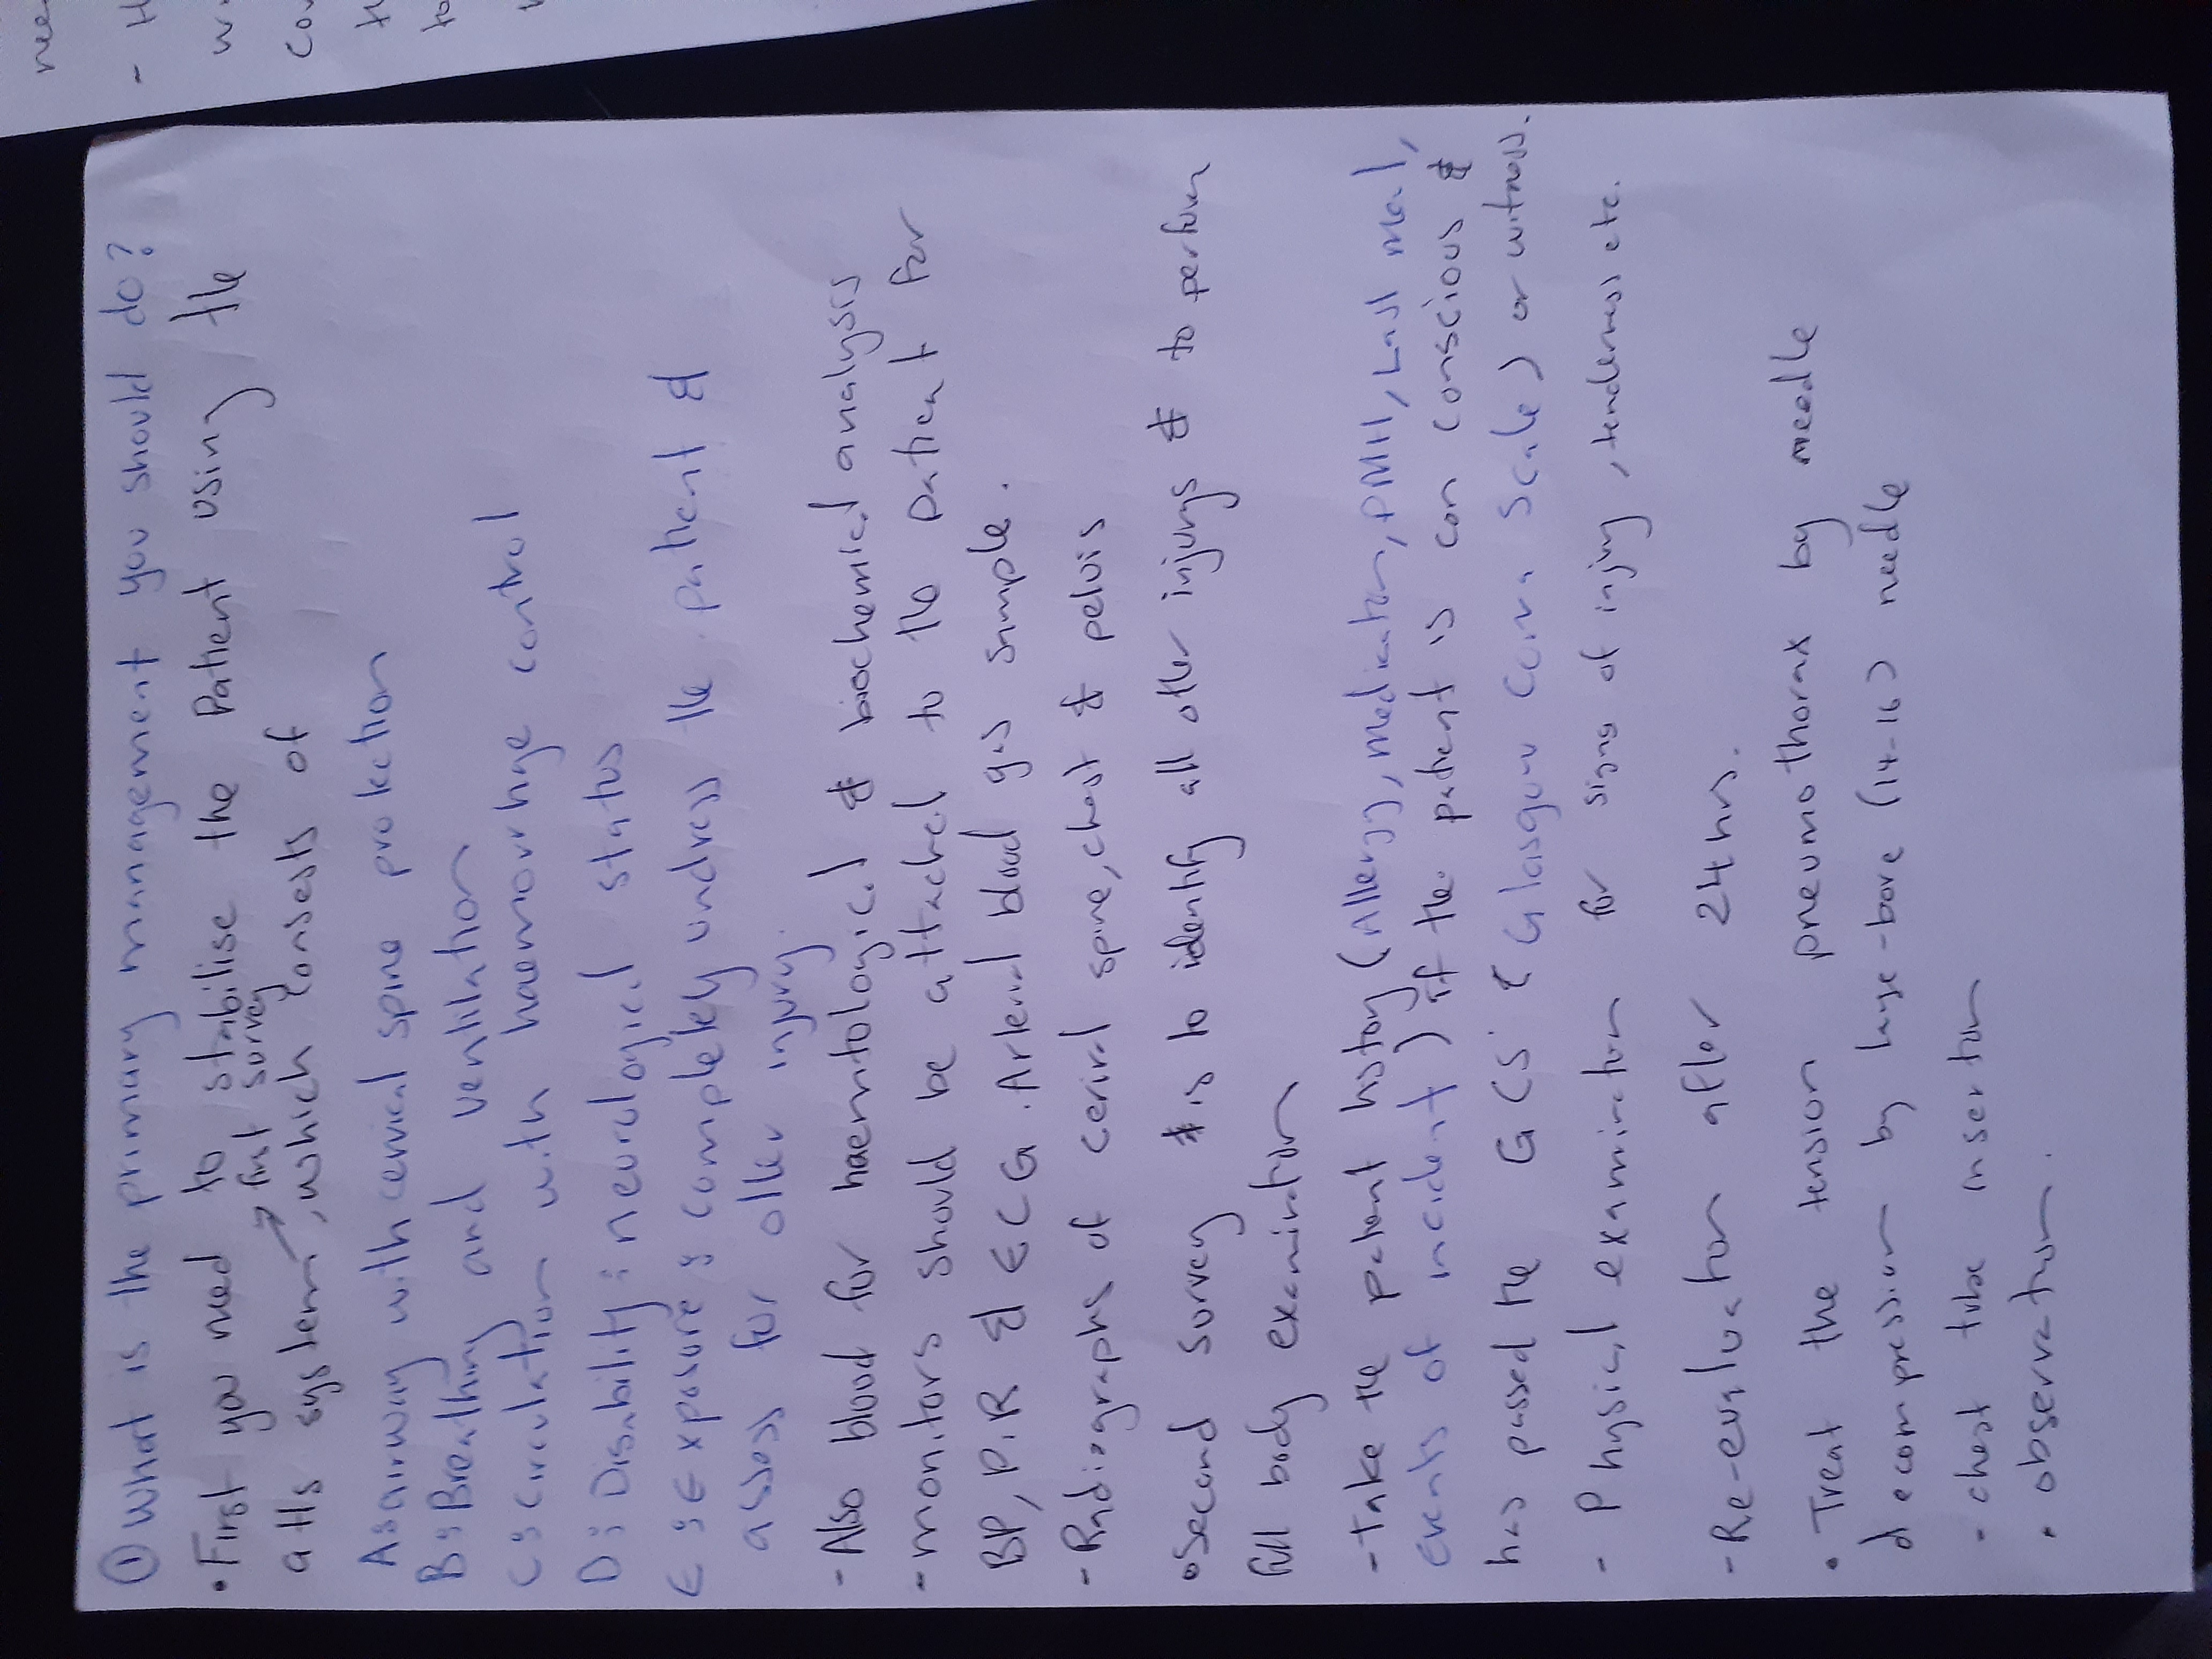 ① What is the primary management you should do?
• First you need to stabilise the patient using the
→ first survey
atls system, which consests of
A: airway with cervical spine protection
B: Breathing and ventilation
C: circulation with haemorrhage control
D: Disability: neurological status
E: Exposure: completely undress the patient &
assess for other injury.
- Also blood for haemtological & biochemical analysis
- monitors should be attached to the patient for
BP, P.R & ECG. Arterial blood gas sample.
- Radiographs of cerival spine, chest & pelvis
• second survey is to identify all other injurys & to perform
full body examination
- take the patient history (Allergy, medication, PMH, Last meal,
events of incident) if the patient is con conscious &
has passed the GCS: (Glasgow Coma Scale) or witness.
- Physical examination for signs of injury, tenderness etc.
- Re-evaluation after 24hrs.
• Treat the tension pneumothorax by needle
decompression by large-bore (14-16) needle
- chest tube insertion
• observation.
nee
- H
w
co
t
to